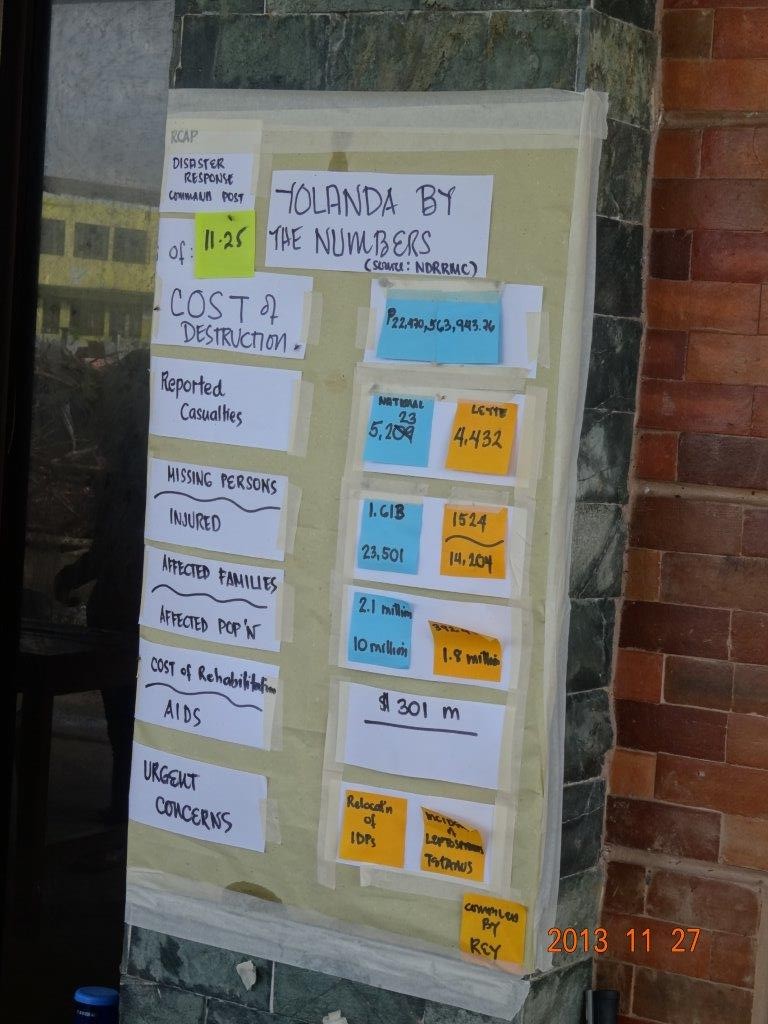 RCAP
DISASTER
RESPONSE
COMMAND POST
of: 11-25
YOLANDA BY
THE NUMBERS
(SOURCE: NDRRMC)
COST of
DESTRUCTION
₱22,470,563,943.76
Reported
Casualties
NATIONAL
23
5,209
LEYTE
4,432
MISSING PERSONS
INJURED
1,613
23,501
1524
14,204
AFFECTED FAMILIES
AFFECTED POP'N
2.1 million
10 million
1.8 million
COST of Rehabilitation
AIDS
$ 301 m
URGENT
CONCERNS
Relocat'n
of
IDPs
TETANUS
COMPILED
BY
REY
2013 11 27